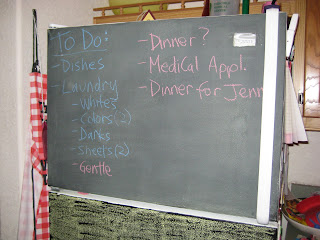 To Do:
-Dishes
-Laundry
-Whites
-Colors(2)
-Darks
-Sheets(2)
-Gentle
-Dinner?
-Medical Appl.
-Dinner for Jenn